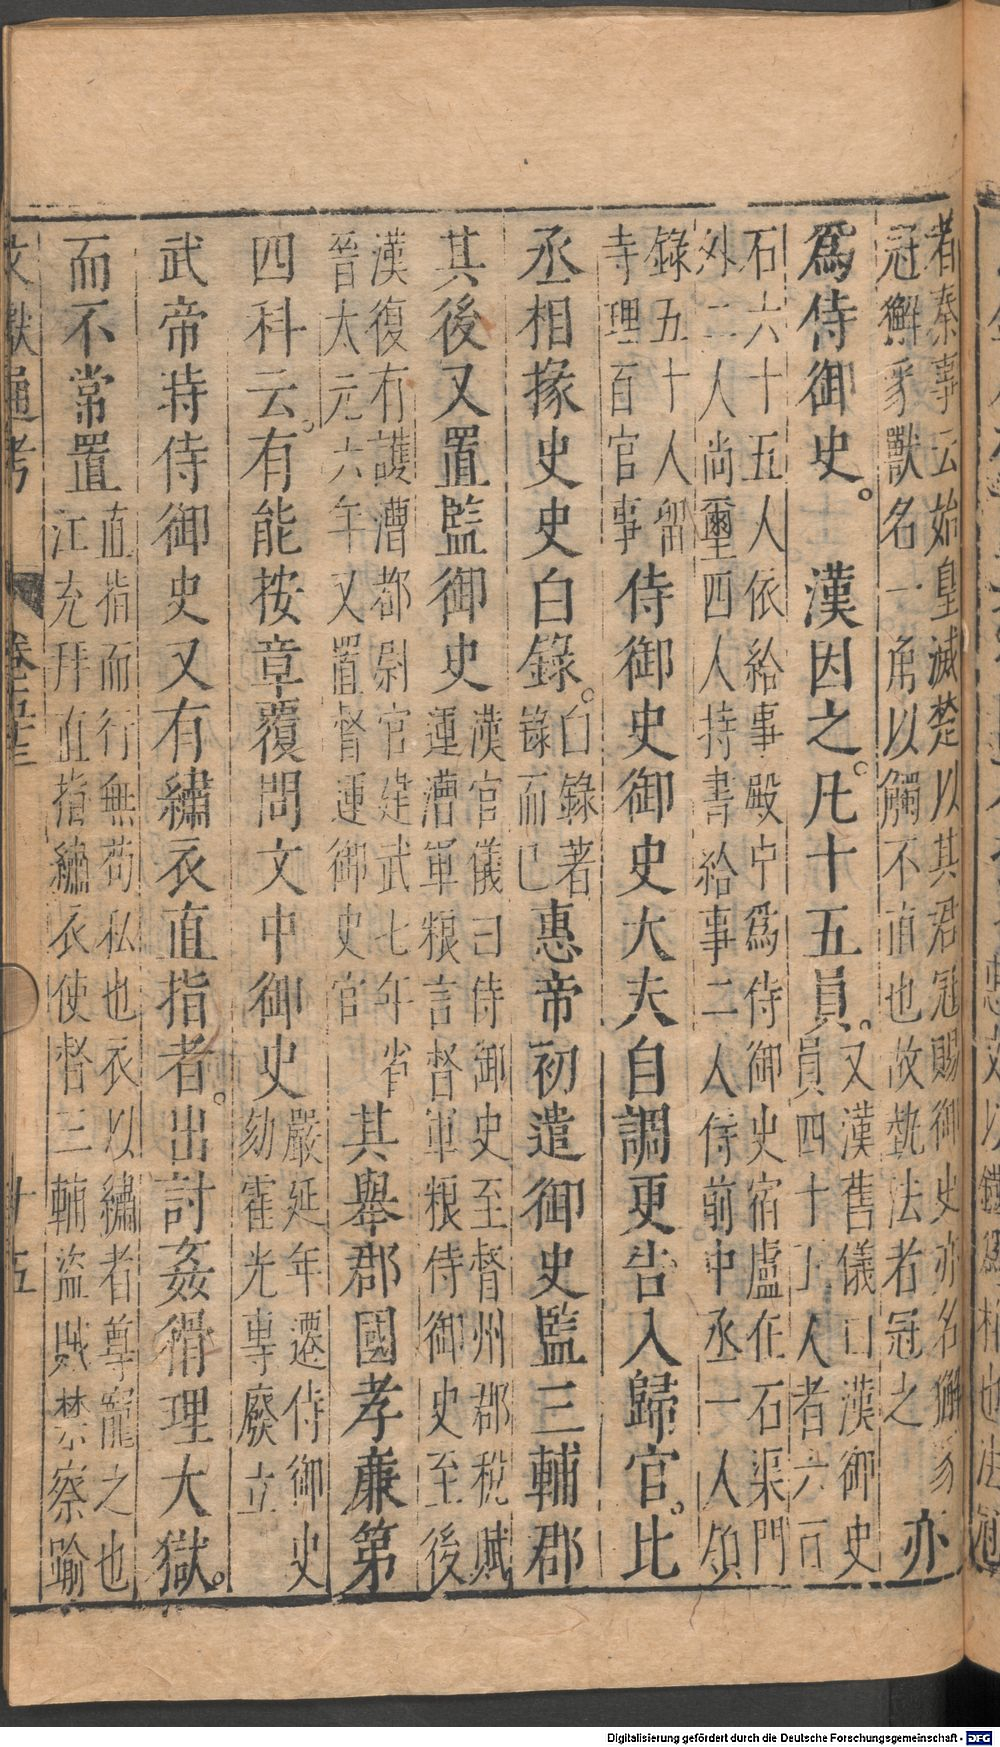 者秦事云始皇滅楚以其君冠賜御史亦名獬豸
冠獬豸獸名一角以觸不直也故執法者冠之
亦
爲侍御史。漢因之。凡十五員。
又漢舊儀曰漢御史
員四十五人者六百
石六十五人依給事殿中爲侍御史宿廬在石渠門
外二人尚璽四人持書給事二人侍前中丞一人領
錄五十人留
寺理百官事
侍御史御史大夫自調更告入歸官。比
丞相掾史史白錄。
白錄著
錄而已
惠帝初遣御史監三輔郡
其後又置監御史
漢官儀曰侍御史至督州郡稅賦
運漕軍粮言督軍粮侍御史至後
漢復有護漕都尉官建武七年省
晉太元六年又置督運御史官
其舉郡國孝廉第
四科云。有能按章覆問文中御史
嚴延年遷侍御史
劾霍光專廢立
武帝時侍御史又有繡衣直指者。出討姦猾理大獄。
而不常置
直指而行無苟私也衣以繡者尊寵之也
江充拜直指繡衣使督三輔盜賊禁察踰
文獻通考
廿五
Digitalisierung gefördert durch die Deutsche Forschungsgemeinschaft - DFG